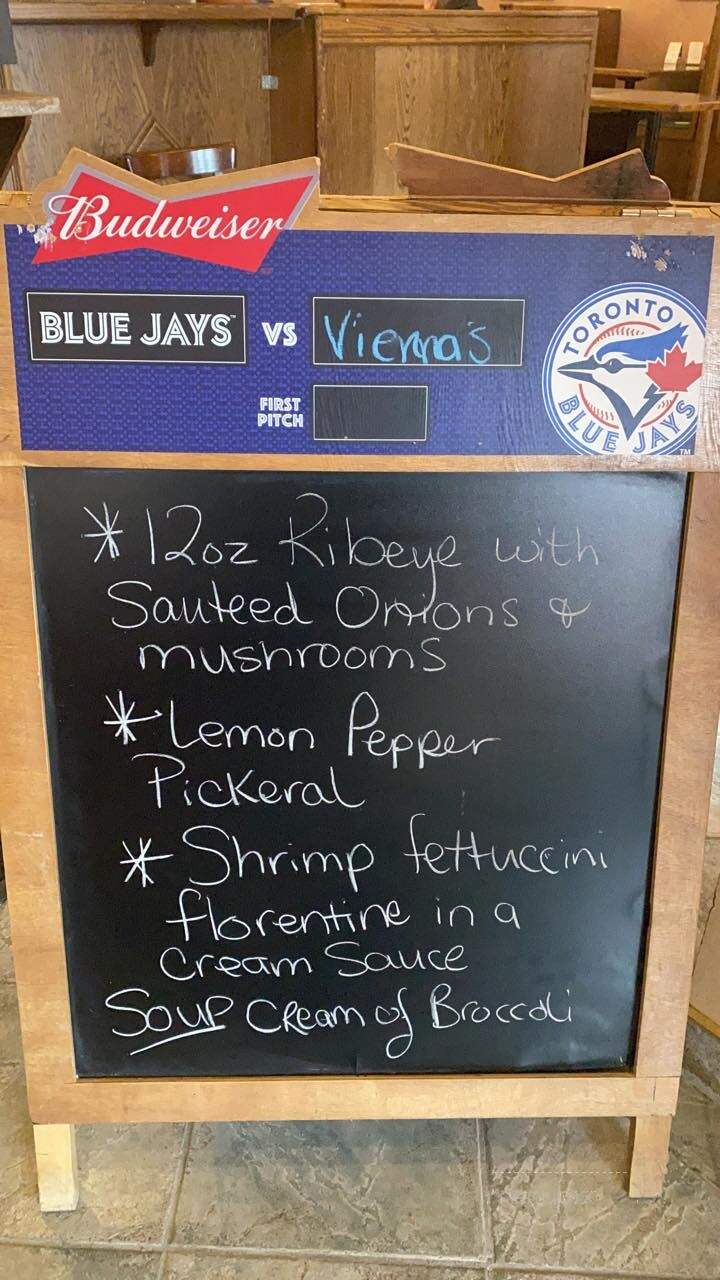 Budweiser
BLUE JAYS™ VS Vienna's
FIRST
PITCH
TORONTO
BLUE JAYS
TM
* 12oz Ribeye with
Sauteed Onions &
mushrooms
* Lemon Pepper
Pickeral
* Shrimp fettuccini
florentine in a
Cream Sauce
Soup Cream of Broccoli